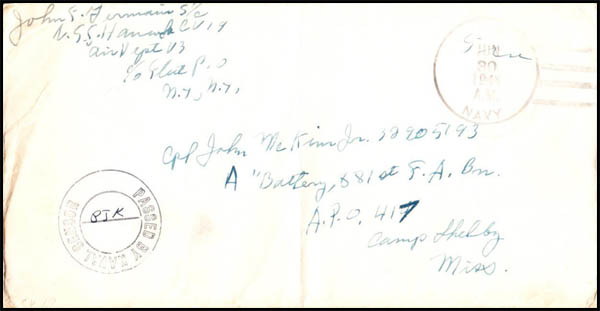 John S. Germain S/c
U.S.S. Hancock CV 19
Air Dept V3
c/o Fleet P.O
N.Y., N.Y.,
Free
JUN
30
194
A.M.
NAVY
Cpl John McKim Jr. 32905193
A "Battery, 881st F.A. Bn.
A.P.O. 417
Camp Shelby
Miss.
PASSED BY NAVAL CENSOR
PJK